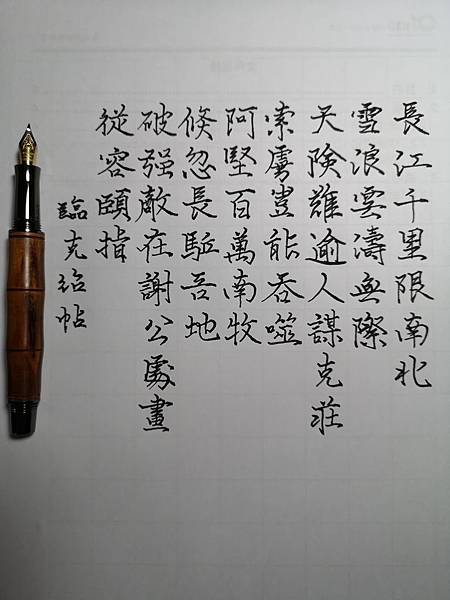 長江千里限南北
雪浪雲濤無際
天険難逾人謀克莊
索虜豈能吞噬
阿堅百萬南牧
倐忽長駈吾地
破强敵在謝公處畫
從容頤指
臨克帖